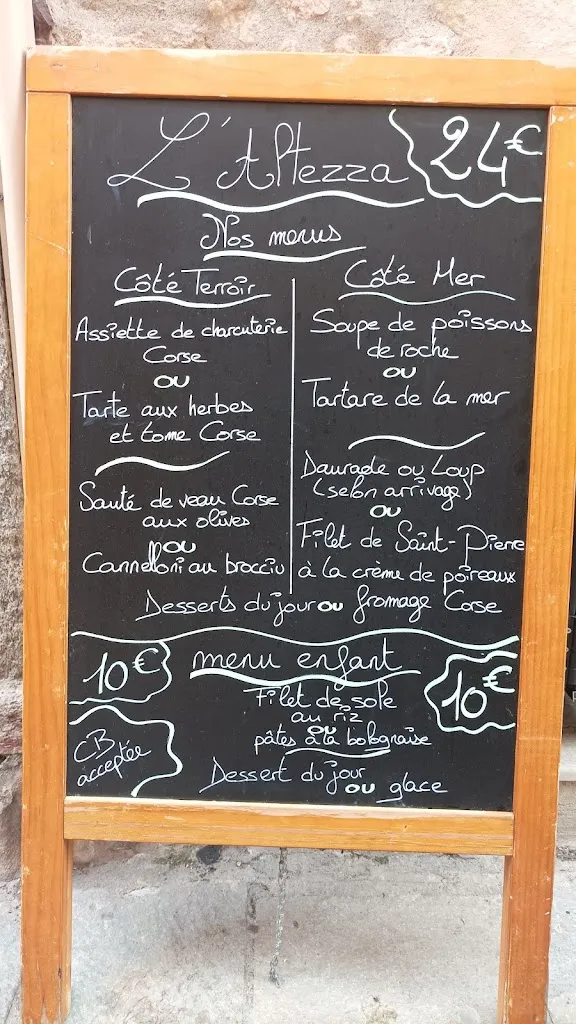 L'Altezza
24€
Nos menus
Côté Terroir
Assiette de charcuterie
Corse
ou
Tarte aux herbes
et tome Corse
Sauté de veau Corse
aux olives
ou
Cannelloni au brocciu
Côté Mer
Soupe de poissons
de roche
ou
Tartare de la mer
Daurade ou Loup
(selon arrivage)
ou
Filet de Saint-Pierre
à la crème de poireaux
Desserts du jour ou fromage Corse
10€
menu enfant
10€
Filet de sole
au riz
ou
pâtes à la bolognaise
Dessert du jour
ou glace
CB
acceptée